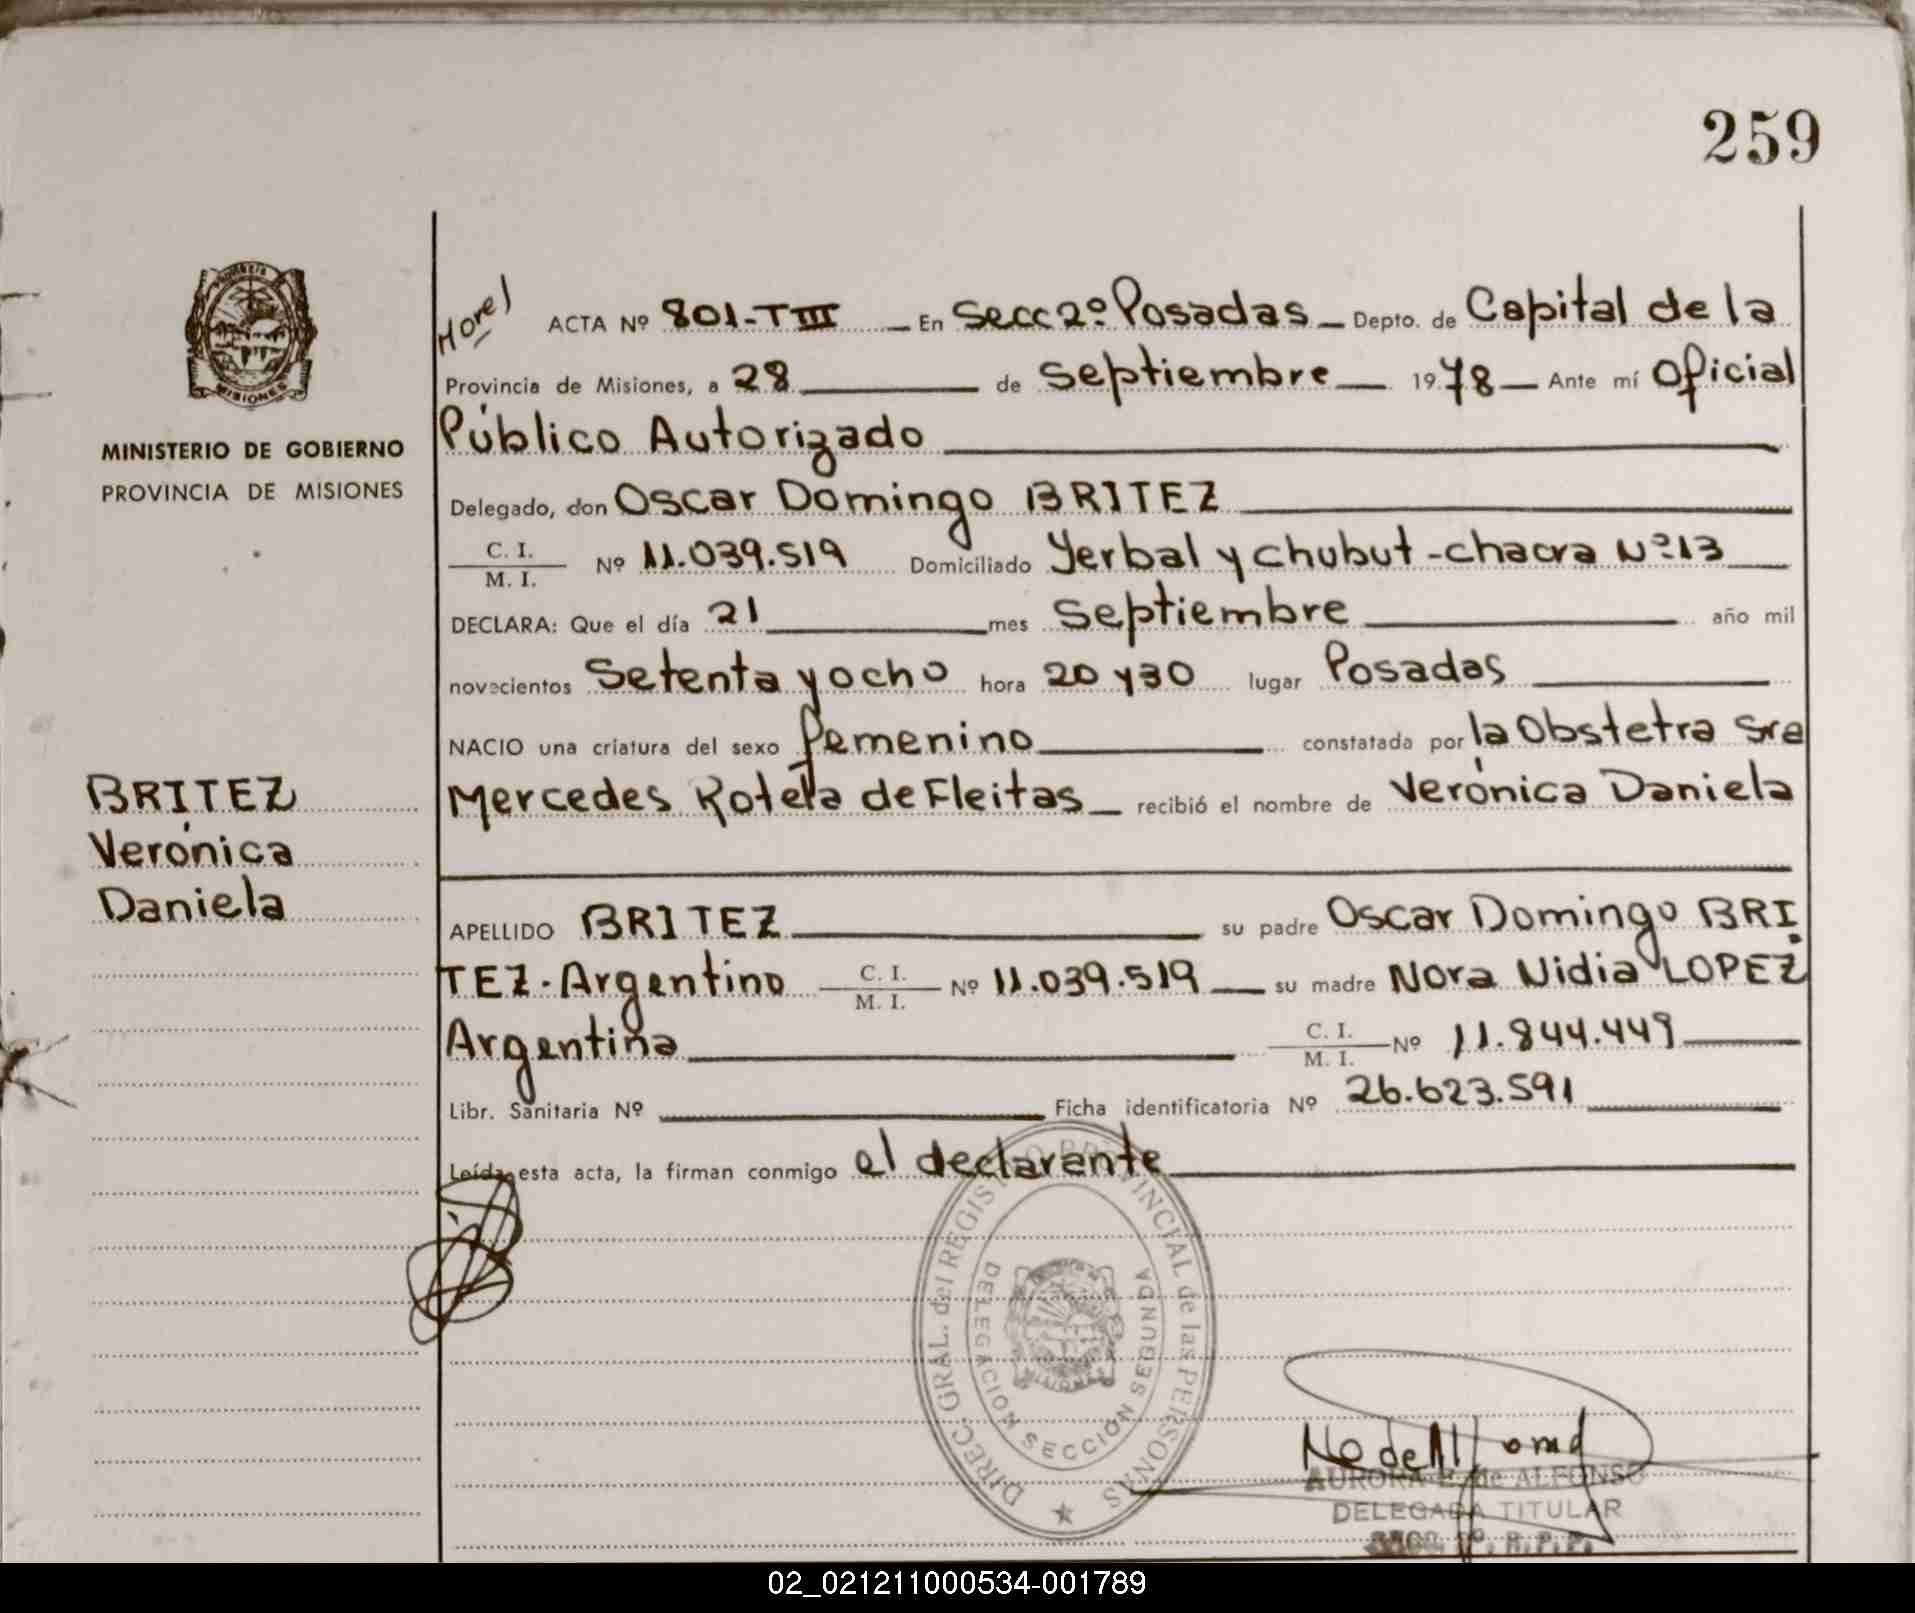 259
Morel
ACTA Nº 801-TIII En Secc 2º Posadas Depto. de Capital de la
Provincia de Misiones, a 28 de Septiembre 1978 Ante mí Oficial
Público Autorizado
Delegado, don Oscar Domingo BRITEZ
C. I.
M. I.
Nº 11.039.519 Domiciliado Yerbal y Chubut - chacra Nº 13
DECLARA: Que el día 21 mes Septiembre año mil
novecientos Setenta y ocho hora 20 y 30 lugar Posadas
NACIO una criatura del sexo femenino constatada por la Obstetra Sra
Mercedes Rotela de Fleitas recibió el nombre de Verónica Daniela
APELLIDO BRITEZ su padre Oscar Domingo BRI
TEZ - Argentino C. I. / M. I. Nº 11.039.519 su madre Nora Nidia LOPEZ
Argentina C. I. / M. I. Nº 11.844.449
Libr. Sanitaria Nº Ficha identificatoria Nº 26.623.591
Leída esta acta, la firman conmigo el declarante
MISIONES
MINISTERIO DE GOBIERNO
PROVINCIA DE MISIONES
BRITEZ
Verónica
Daniela
DIREC. GRAL. del REGISTRO PROVINCIAL de las PERSONAS
DELEGACION SECCIÓN SEGUNDA
MISIONES
AURORA de ALFONSO
DELEGADA TITULAR
R.P.P.
02_021211000534-001789